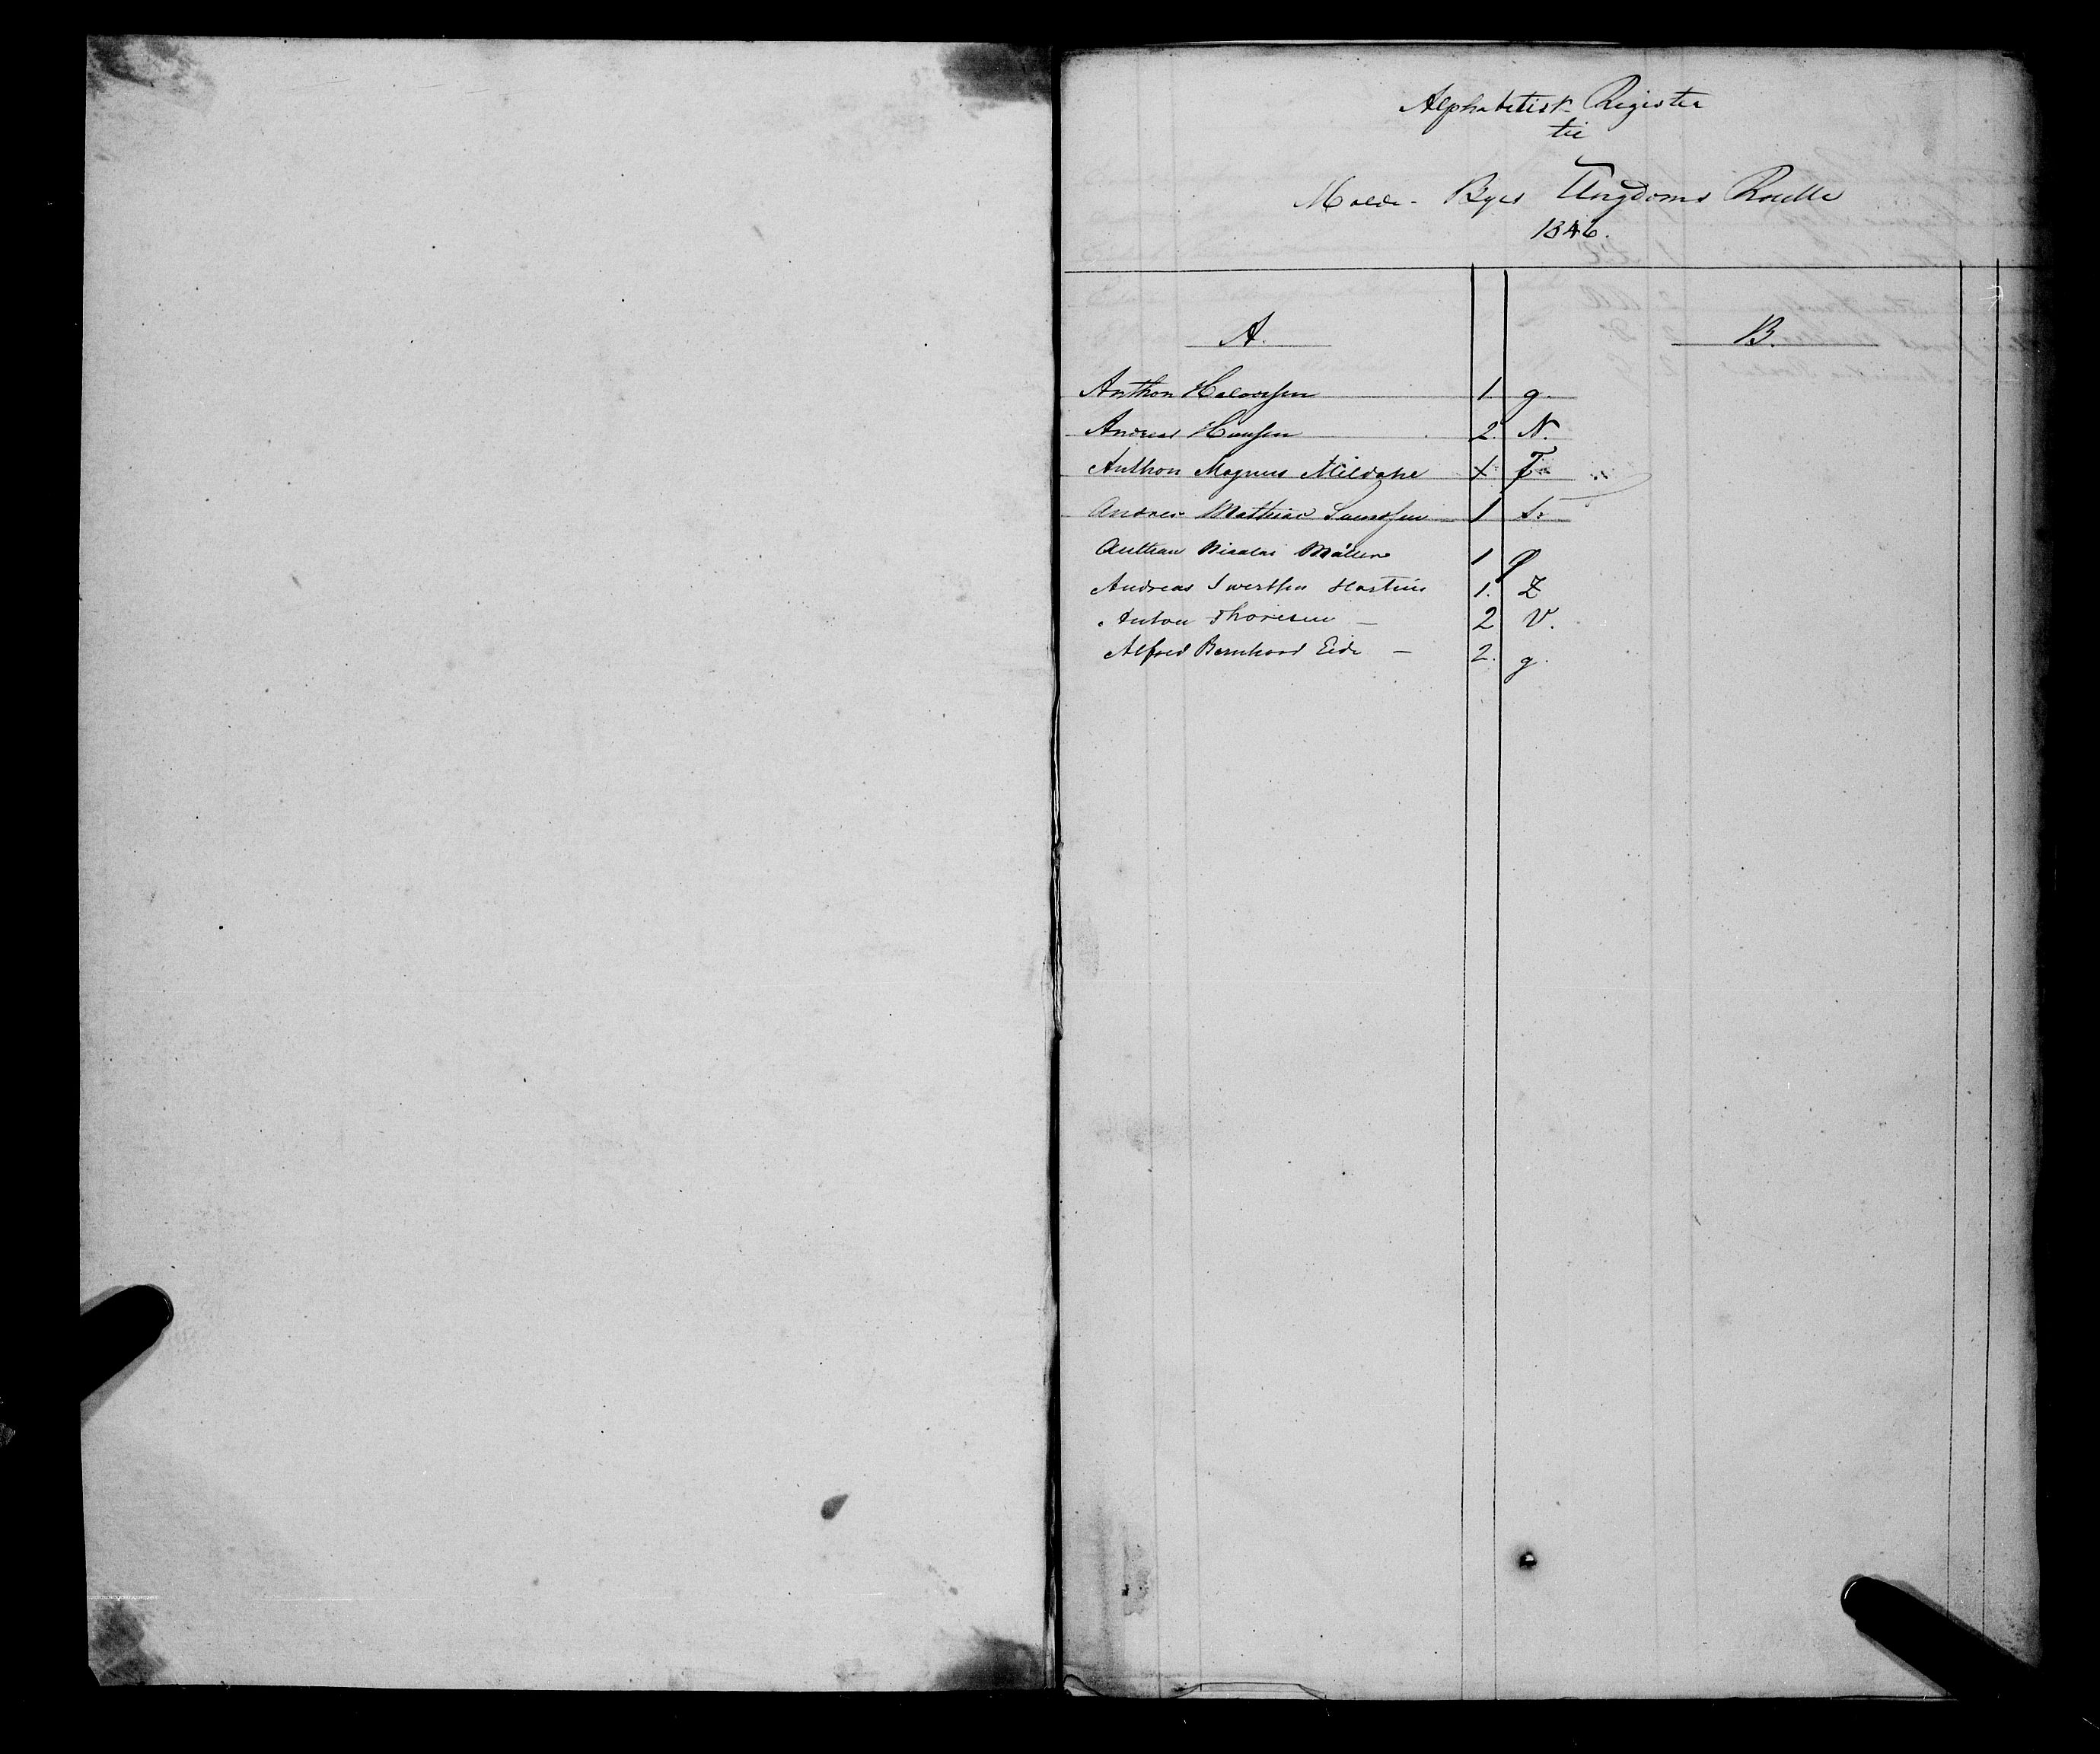 Alphabetisk Register
til
Molde Byes Ungdoms Roulle
1846.
A.
B.
Anthon Halvorsen 1 g.
Andreas Hansen 2. N.
Anthon Magnus 
Andreas Mathias 1
Anthon Nicolai 1
Andreas Iwersen 1. Z
Anton Thoresen — 2 V.
Alfred Bernhard Eide — 2. g.